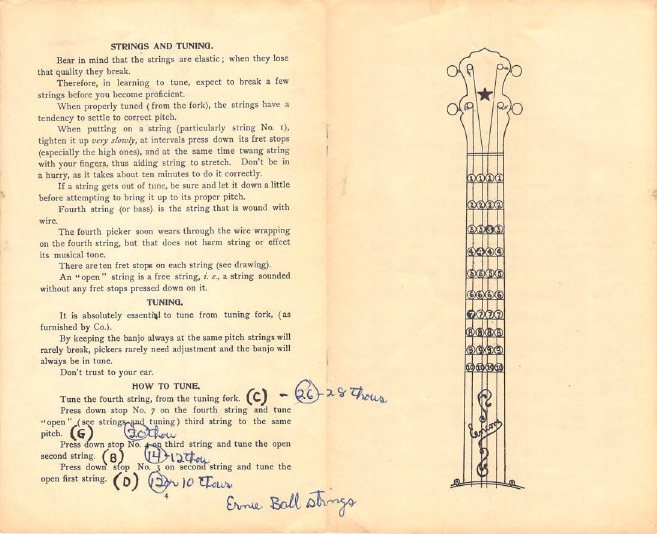 STRINGS AND TUNING.
Bear in mind that the strings are elastic; when they lose
that quality they break.
Therefore, in learning to tune, expect to break a few
strings before you become proficient.
When properly tuned (from the fork), the strings have a
tendency to settle to correct pitch.
When putting on a string (particularly string No. 1),
tighten it up very slowly, at intervals press down its fret stops
(especially the high ones), and at the same time twang string
with your fingers, thus aiding string to stretch. Don't be in
a hurry, as it takes about ten minutes to do it correctly.
If a string gets out of tune, be sure and let it down a little
before attempting to bring it up to its proper pitch.
Fourth string (or bass) is the string that is wound with
wire.
The fourth picker soon wears through the wire wrapping
on the fourth string, but that does not harm string or effect
its musical tone.
There are ten fret stops on each string (see drawing).
An "open" string is a free string, i. e., a string sounded
without any fret stops pressed down on it.
TUNING.
It is absolutely essential to tune from tuning fork, (as
furnished by Co.).
By keeping the banjo always at the same pitch strings will
rarely break, pickers rarely need adjustment and the banjo will
always be in tune.
Don't trust to your ear.
HOW TO TUNE.
Tune the fourth string, from the tuning fork. (C) - 26 - 28 thous
Press down stop No. 7 on the fourth string and tune
"open" (see strings and tuning) third string to the same
pitch. (G) 20 thou
Press down stop No. 4 on third string and tune the open
second string. (B) 14 - 12 thou
Press down stop No. 3 on second string and tune the
open first string. (D) 12 or 10 thous
4
Ernie Ball strings
1 1 1 1
2 2 2 2
3 3 3 3
4 4 4 4
5 5 5 5
6 6 6 6
7 7 7 7
8 8 8 8
9 9 9 9
10 10 10 10
Encore